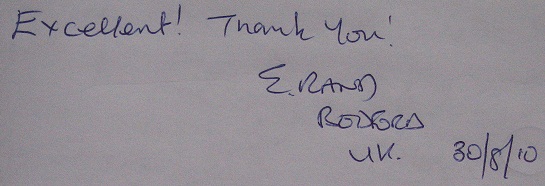 Excellent! Thank You!
E. RAND
BEDFORD
UK. 30/8/10